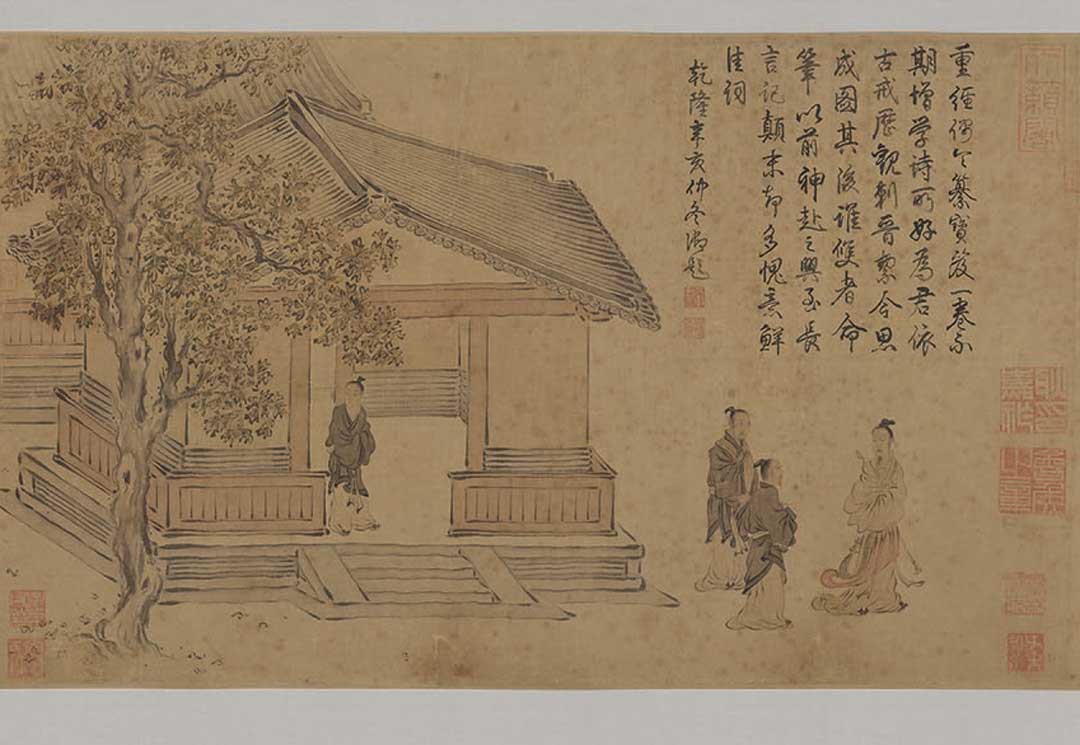 重經偶纂寶笈一卷
期增學詩所好為君依
古戒歷觀刺晉今思
成圖其後誰使者命
筆以前神赴之興至長
言記顛末却多愧意鮮
佳詞
乾隆辛亥仲冬御題